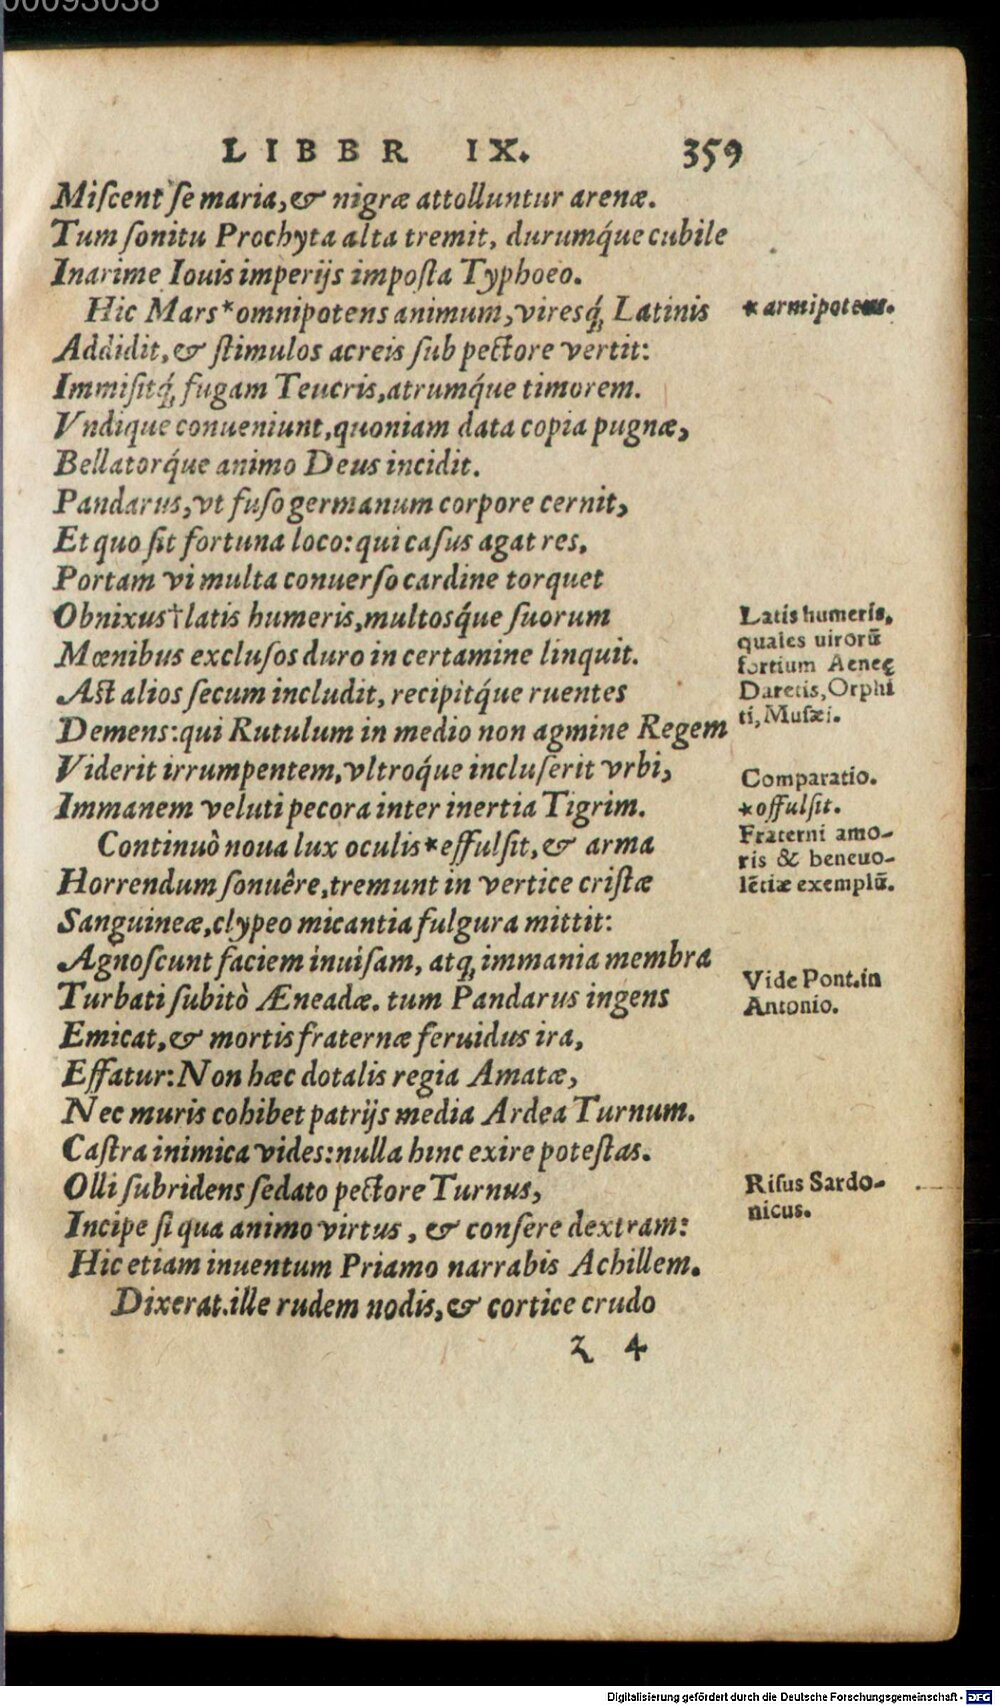 00093038
LIBER IX. 359
Miſcent ſe maria, & nigræ attolluntur arenæ.
Tum ſonitu Prochyta alta tremit, durumq́ue cubile
Inarime Iouis imperijs impoſta Typhoeo.
Hic Mars*omnipotens animum, viresq́; Latinis
*armipotens.
Addidit, & ſtimulos acreis ſub pectore vertit:
Immiſitq́; fugam Teucris, atrumq́ue timorem.
Vndique conueniunt, quoniam data copia pugnæ,
Bellatorq́ue animo Deus incidit.
Pandarus, vt fuſo germanum corpore cernit,
Et quo ſit fortuna loco: qui caſus agat res,
Portam vi multa conuerſo cardine torquet
Obnixus†latis humeris, multosq́ue ſuorum
Mœnibus excluſos duro in certamine linquit.
Aſt alios ſecum includit, recipitq́ue ruentes
Demens: qui Rutulum in medio non agmine Regem
Viderit irrumpentem, vltroq́ue incluſerit vrbi,
Immanem veluti pecora inter inertia Tigrim.
Latis humeris,
quales uirorũ
fortium Aeneę
Daretis, Orphi
ti, Muſæi.
Comparatio.
*offulſit.
Fraterni amo-
ris & beneuo-
lẽtiæ exemplũ.
Continuò noua lux oculis*effulſit, & arma
Horrendum ſonuêre, tremunt in vertice criſtæ
Sanguineæ, clypeo micantia fulgura mittit:
Agnoſcunt faciem inuiſam, atq; immania membra
Turbati ſubitò Æneadæ. tum Pandarus ingens
Vide Pont. in
Antonio.
Emicat, & mortis fraternæ feruidus ira,
Effatur: Non hæc dotalis regia Amatæ,
Nec muris cohibet patrijs media Ardea Turnum.
Caſtra inimica vides: nulla hinc exire poteſtas.
Olli ſubridens ſedato pectore Turnus,
Riſus Sardo-
nicus.
Incipe ſi qua animo virtus, & conſere dextram:
Hic etiam inuentum Priamo narrabis Achillem.
Dixerat. ille rudem nodis, & cortice crudo
z 4
Digitalisierung gefördert durch die Deutsche Forschungsgemeinschaft - DFG